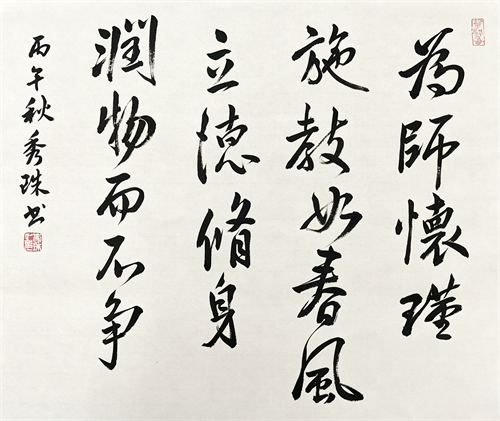 為師懷瑾
施教如春風
立德脩身
潤物而不争
丙午秋秀珠书